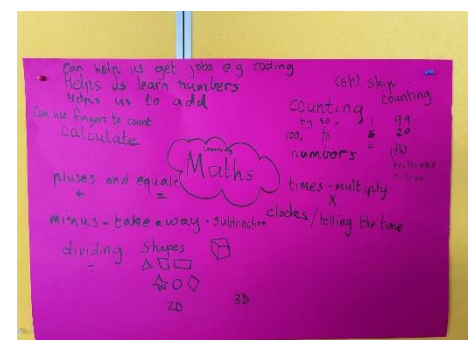 Can help us get jobs e.g coding
Helps us learn numbers
Helps us to add
Can use fingers to count
calculate
(st) skip counting
counting
by 50, 1 99
100, 70 5 20
numbers 4
(th)
trillions
million
Learning
Maths
pluses and equals
+ =
times - multiply
x
minus - take away - subtraction
clocks/telling the time
dividing
÷
Shapes
2D
3D